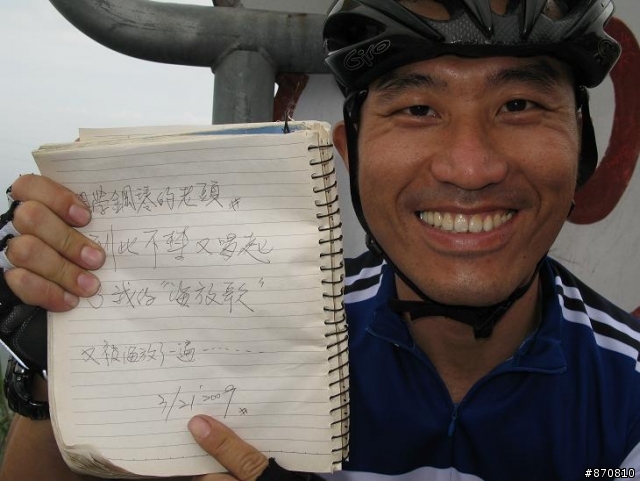 鋼琴的老頭
到此不禁又唱起
我的"海放歌"
又被海放了一遍……
3/21 2009
Giro
#870810